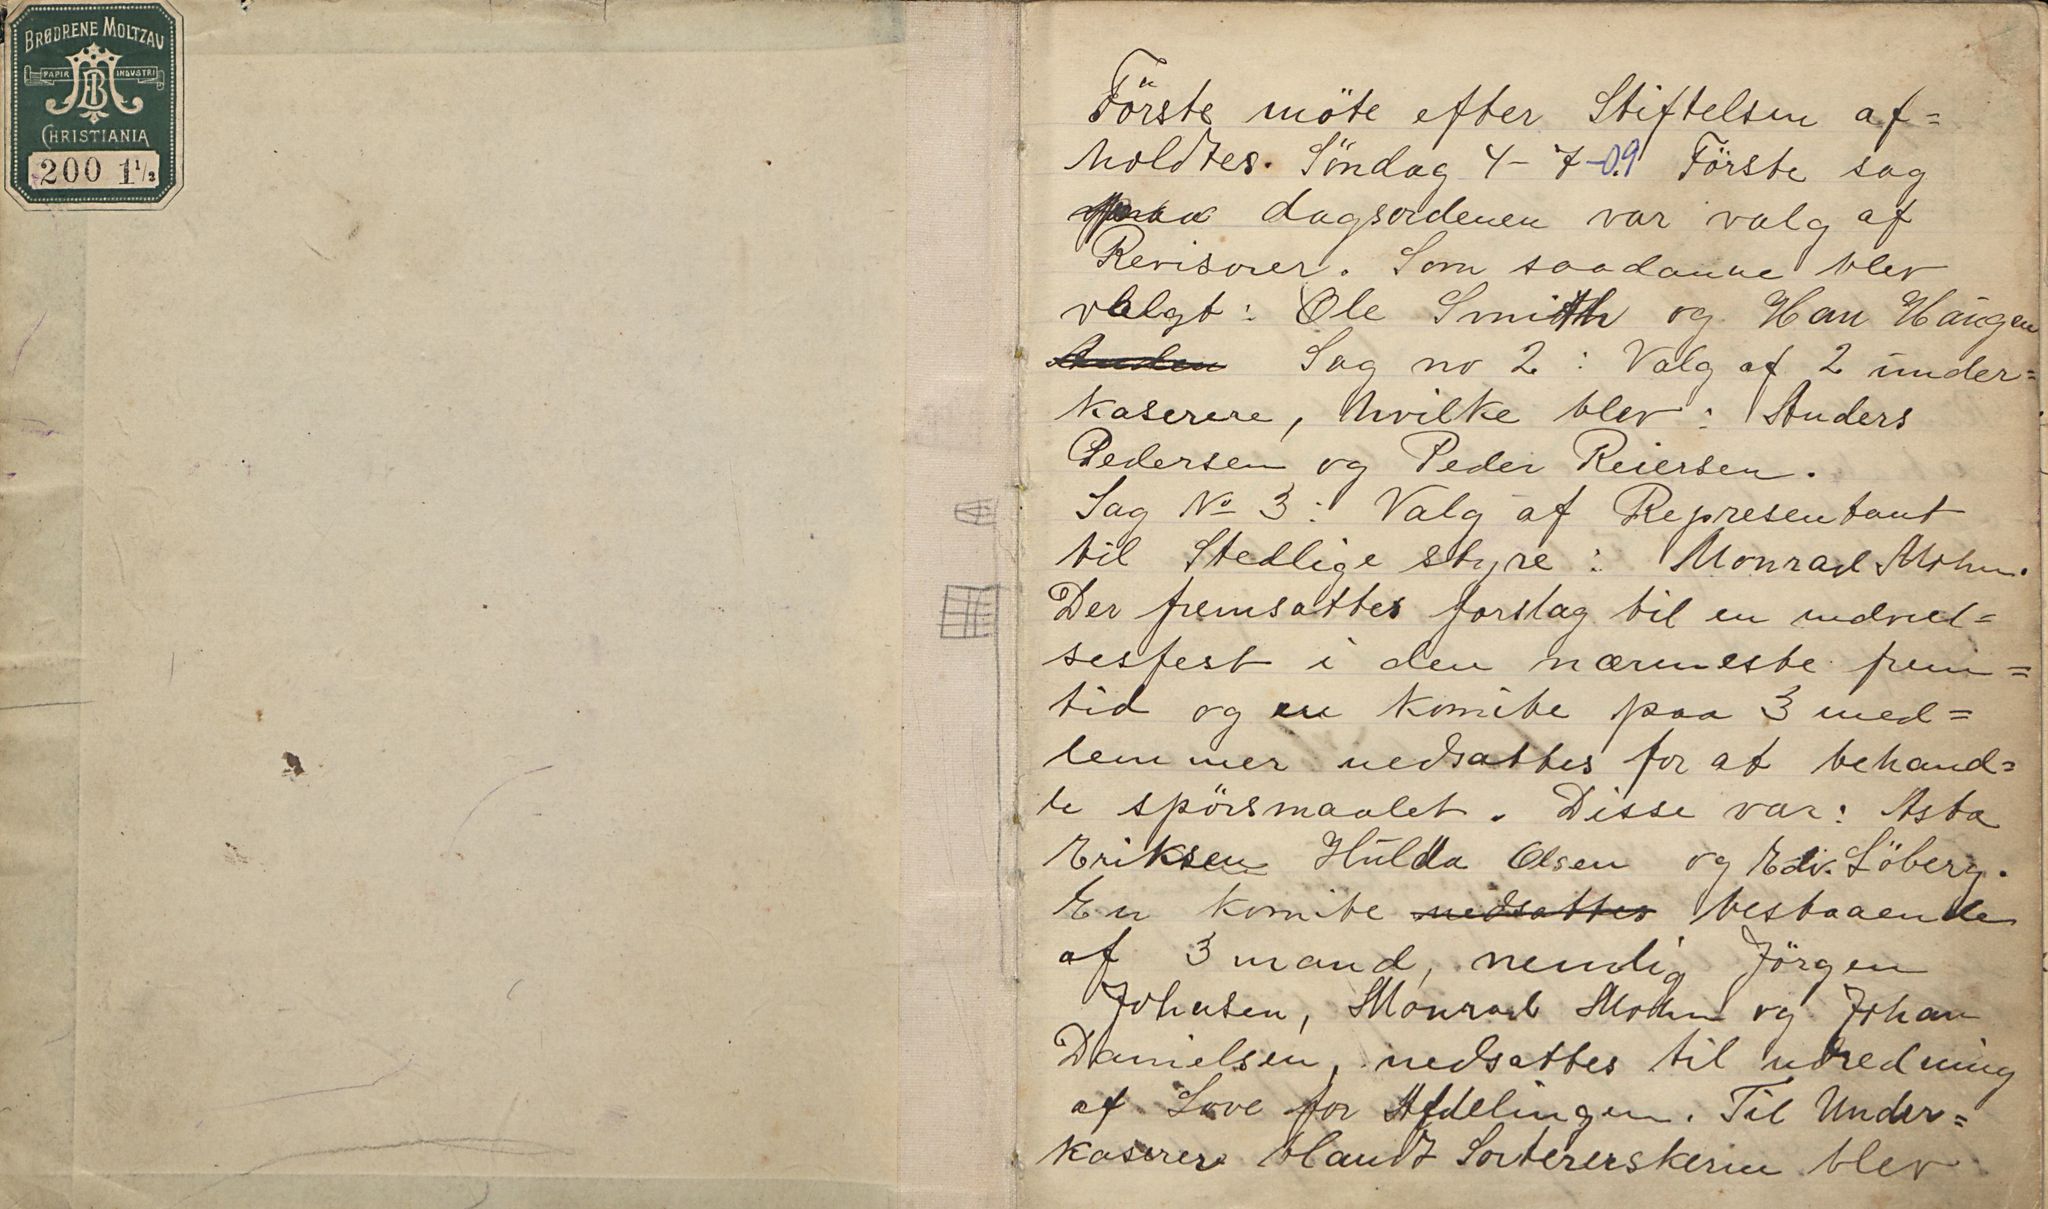 BRØDRENE MOLTZAU
PAPIR INDUSTRI
CHRISTIANIA
200 1 1/2
Förste möte efter Stiftelsen af=
holdtes. Söndag 4-7-09 Förste sag
paa dagsordenen var valg af
Revisorer. Som saadanne blev
valgt: Ole Smith og Han Haugen
Anden Sag no 2: Valg af 2 under=
kaserere, hvilke blev: Anders
Pedersen og Peder Reiersen.
Sag No 3: Valg af Representant
til Stedlige styre: Monrad Mohn.
Der fremsattes forslag til en indviel=
sesfest i den nærmeste frem=
tid og en komite paa 3 med=
lemmer nedsattes for at behand=
le spörsmaalet. Disse var: Asta
Eriksen Hulda Olsen og Edv. Söberg.
En komite nedsattes bestaaende
af 3 mand, nemlig Jörgen
Johnsen, Monrad Mohn og Johan
Danielsen, nedsattes til udredning
af Love for Afdelingen. Til Under=
kaserer blandt Sortererskerne blev